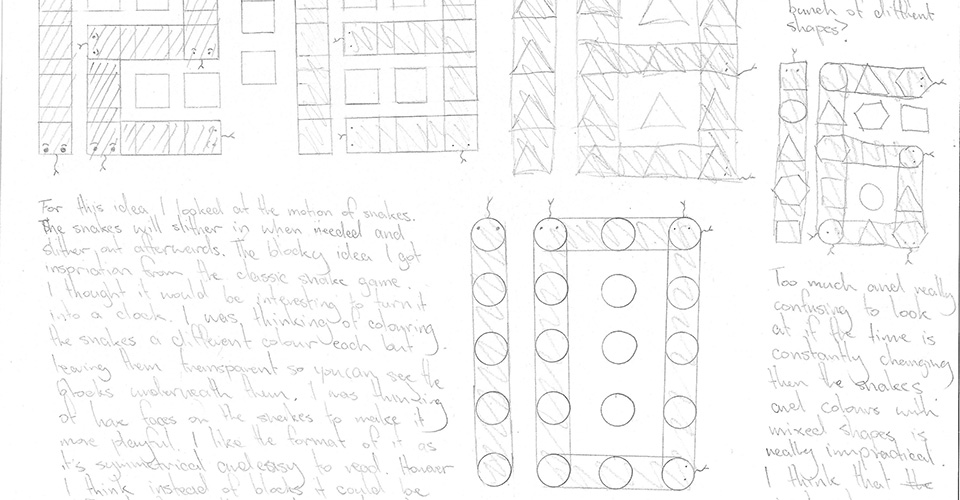 bunch of different
shapes?
For this idea I looked at the motion of snakes.
The snakes will slither in when needed and
slither out afterwards. The blocky idea I got
inspriation from the classic snake game.
I thought it would be interesting to turn it
into a clock. I was thinking of colouring
the snakes a different colour each but
leaving them transparent so you can see the
blocks underneath them. I was thinking
of have faces on the snakes to make it
more playful. I like the format of it as
it's symmetrical and easy to read. However
I think instead of blocks it could be
Too much and really
confusing to look
at if the time is
constantly changing
then the snakes
and colours with
mixed shapes is
really impractical.
I think that the